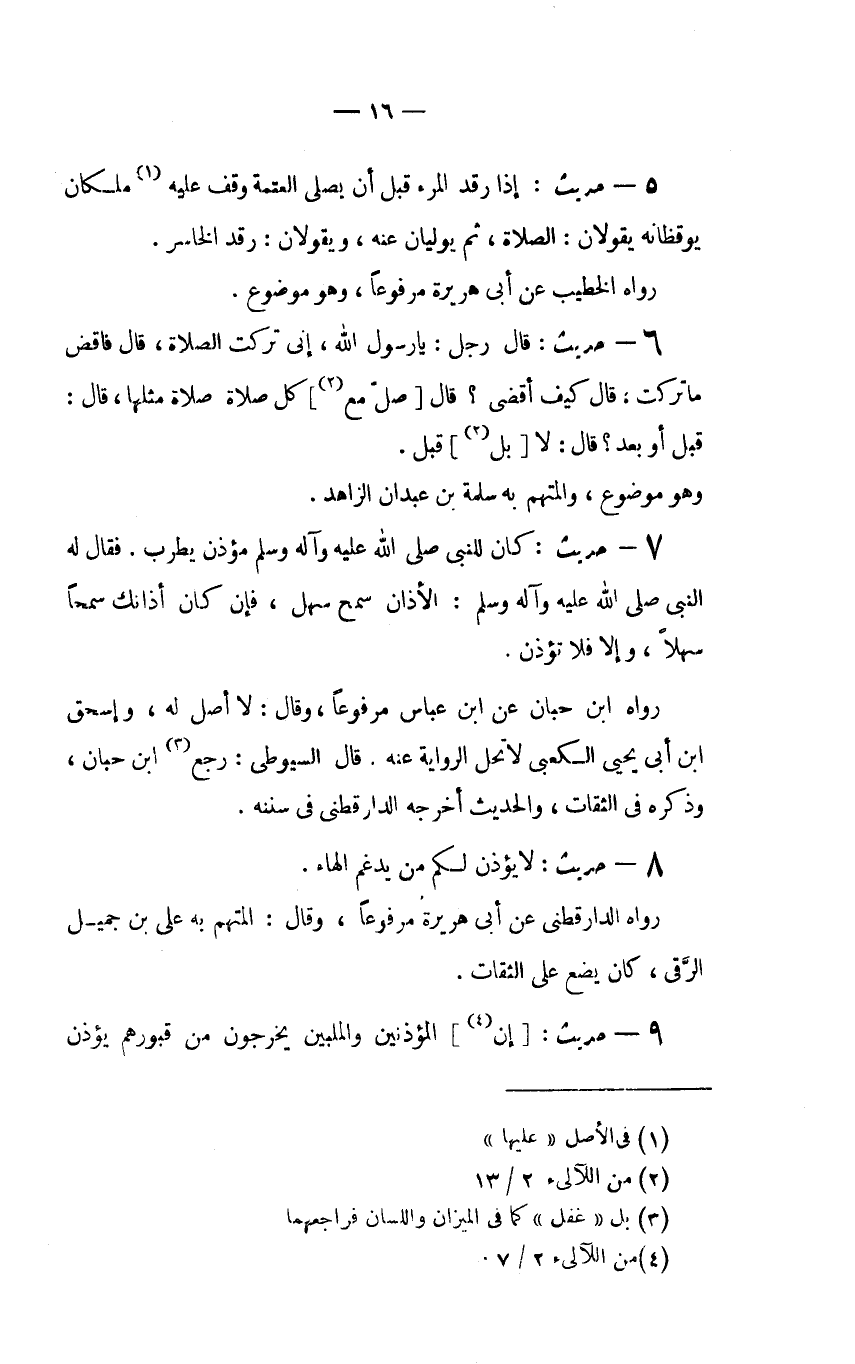 — ١٦ —
٥ — حديث : إذا رقد المرء قبل أن يصلى العتمة وقف عليه (١) ملكان
يوقظانه يقولان : الصلاة ، ثم يوليان عنه ، ويقولان : رقد الخاسر .
رواه الخطيب عن أبى هريرة مرفوعاً ، وهو موضوع .
٦ — حديث : قال رجل : يارسول الله ، إنى تركت الصلاة ، قال فاقض
ماتركت ؛ قال كيف أقضى ؟ قال [ صلّ مع (٢)] كل صلاة صلاة مثلها ، قال :
قبل أو بعد ؟ قال : لا [ بل (٢) ] قبل .
وهو موضوع ، والمتهم به سلمة بن عبدان الزاهد .
٧ — حديث : كان للنبى صلى الله عليه وآله وسلم مؤذن يطرب . فقال له
النبى صلى الله عليه وآله وسلم : الأذان سمح سهل ، فإن كان أذانك سمحاً
سهلاً ، وإلا فلا تؤذن .
رواه ابن حبان عن ابن عباس مرفوعاً ، وقال : لا أصل له ، وإسحق
ابن أبى يحيى الكعبى لاتحل الرواية عنه . قال السيوطى : رجع (٣) ابن حبان ،
وذكره فى الثقات ، والحديث أخرجه الدارقطنى فى سننه .
٨ — حديث : لايؤذن لكم من يدغم الهاء .
رواه الدارقطنى عن أبى هريرة مرفوعاً ، وقال : المتهم به على بن جميل
الرَّقى ، كان يضع على الثقات .
٩ — حديث : [ إن (٤) ] المؤذنين والملبين يخرجون من قبورهم يؤذن
(١) فى الأصل « عليها »
(٢) من اللآلىء ٢ / ١٣
(٣) بل « غفل » كما فى الميزان واللسان فراجعهما
(٤) من اللآلىء ٢ / ٠٧